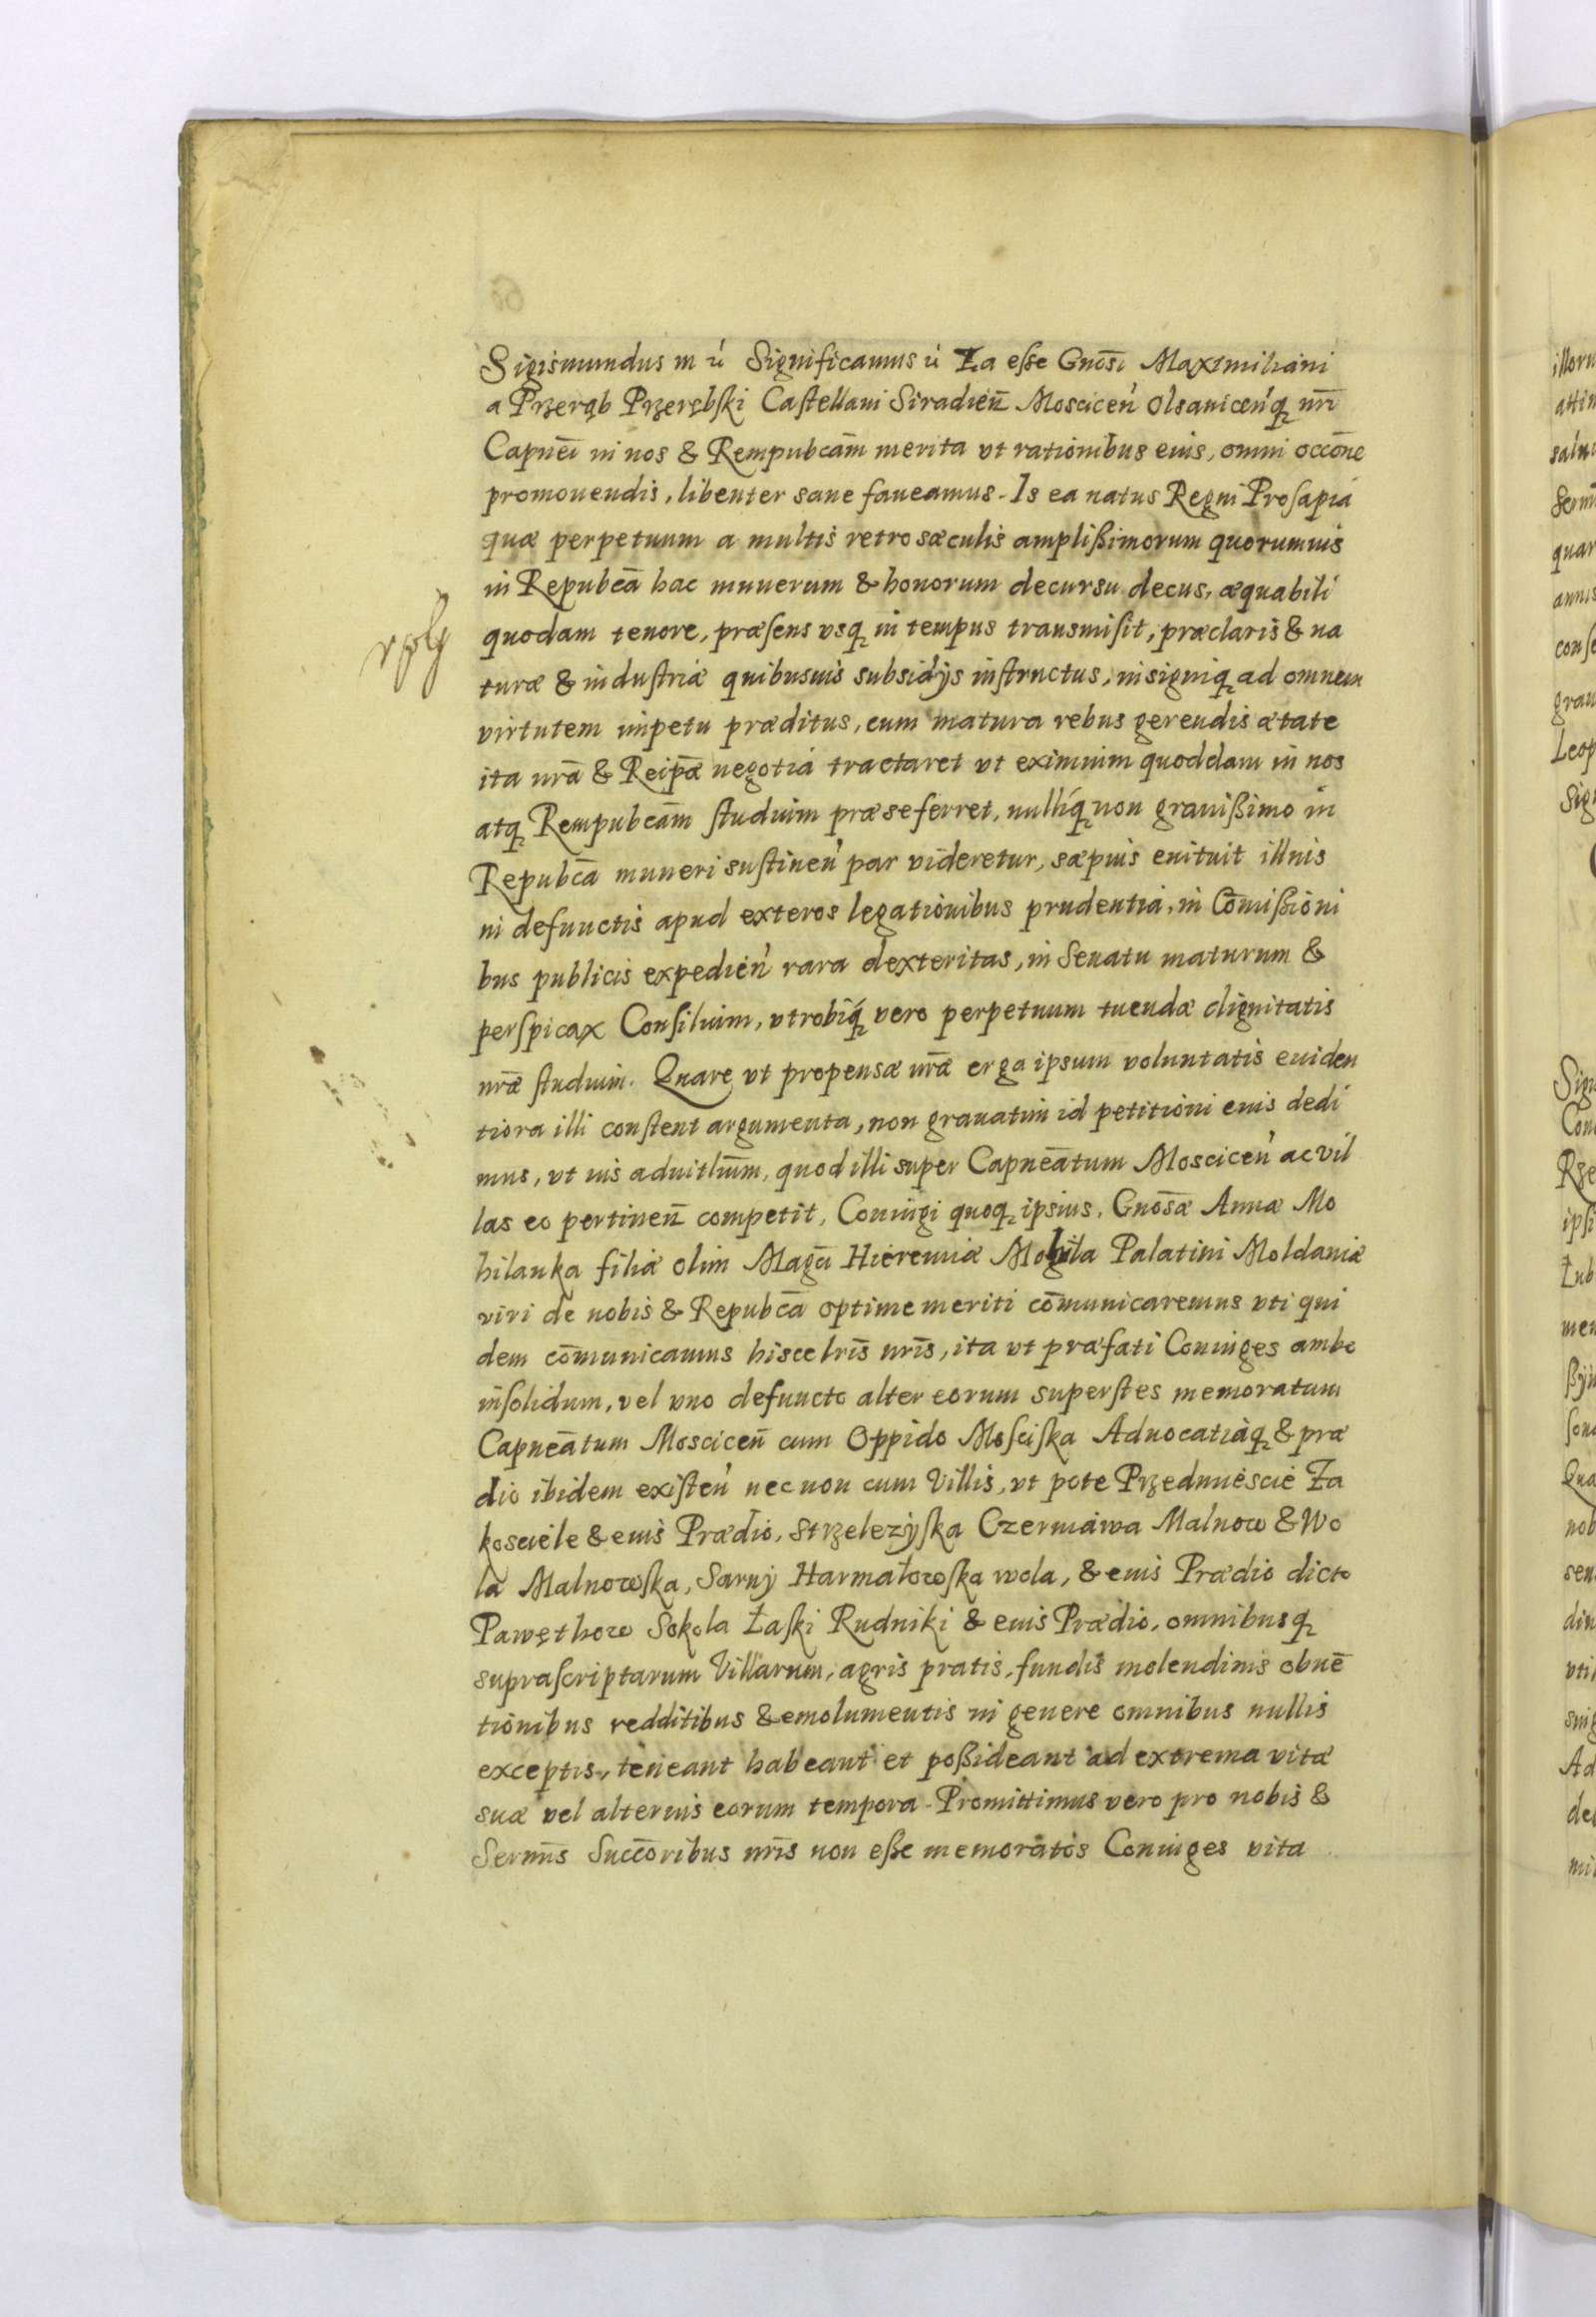 Sigismundus m ú Significamus ú Ea eſse Gnōsi Maximiliani
a Przerąb Przerębski Caſtellani Siradien̄ Moscicen̄ Olsanicen̄q nr̄i
Capnēi in nos & Rempubcām merita vt rationibus eius, omni occōne
promouendis, libenter sane faueamus. Is ea natus Regni Proſapia
quæ perpetuum a multis retro sæculis ampliſsimorum quorumuis
in Repubcā hac munerum & honorum decursu decus, æquabili
quodam tenore, præſens vsq in tempus transmiſit, præclaris & na
turæ & induſtriæ quibusuis subsidijs inſtructus, insigniq ad omnem
virtutem impetu præditus, cum matura rebus gerendis ætate
ita nrā & Reipǣ negotia tractaret vt eximium quoddam in nos
atq Rempubcām ſtudium præseferret, nulliq́ non grauiſsimo in
Repubcā muneri suſtinen̄ par videretur, sæpius enituit illius
in defunctis apud exteros legationibus prudentia, in Com̄iſsioni
bus publicis expedien̄ rara dexteritas, in Senatu maturum &
perſpicax Conſilium, vtrobiq́ vero perpetuum tuendæ dignitatis
nrǣ ſtudium. Quare vt propensæ nrǣ erga ipsum voluntatis euiden
tiora illi conſtent argumenta, non grauatim id petitioni eius dedi
mus, vt ius aduitlīum, quod illi super Capneātum Moscicen̄ ac vil
las eo pertinen̄ competit, Coniugi quoq ipsius, Gnosǣ Annæ Mo
hilanka filiæ olim Magcī Hieremiæ Mohila Palatini Moldauiæ
viri de nobis & Repubcā optime meriti cōmunicaremus vti qui
dem cōmunicamus hisce lrīs nrīs, ita vt præfati Coniuges ambo
inſolidum, vel vno defuncto alter eorum superſtes memoratum
Capneātum Moscicen̄ cum Oppido Moſciſka Aduocatiaq & præ
dio ibidem exiſten̄ nec non cum Villis, vt pote Przedmiescie Za
kosciele & eius Prædio, Strzelezyſka Czerniawa Malnow & Wo
la Malnowſka, Sarny Harmałowſka wola, & eius Prædio dicto
Pawęthow Sokola Łaſki Rudniki & eius Prædio, omnibusq
supraſcriptarum Villarum, agris pratis, fundis molendinis obuē
tionibus redditibus & emolumentis in genere omnibus nullis
exceptis, teneant habeant et poſsideant ad extrema vitæ
suæ vel alterius eorum tempora. Promittimus vero pro nobis &
Sermīs Succoribus nrīs non eſse memoratos Coniuges vita